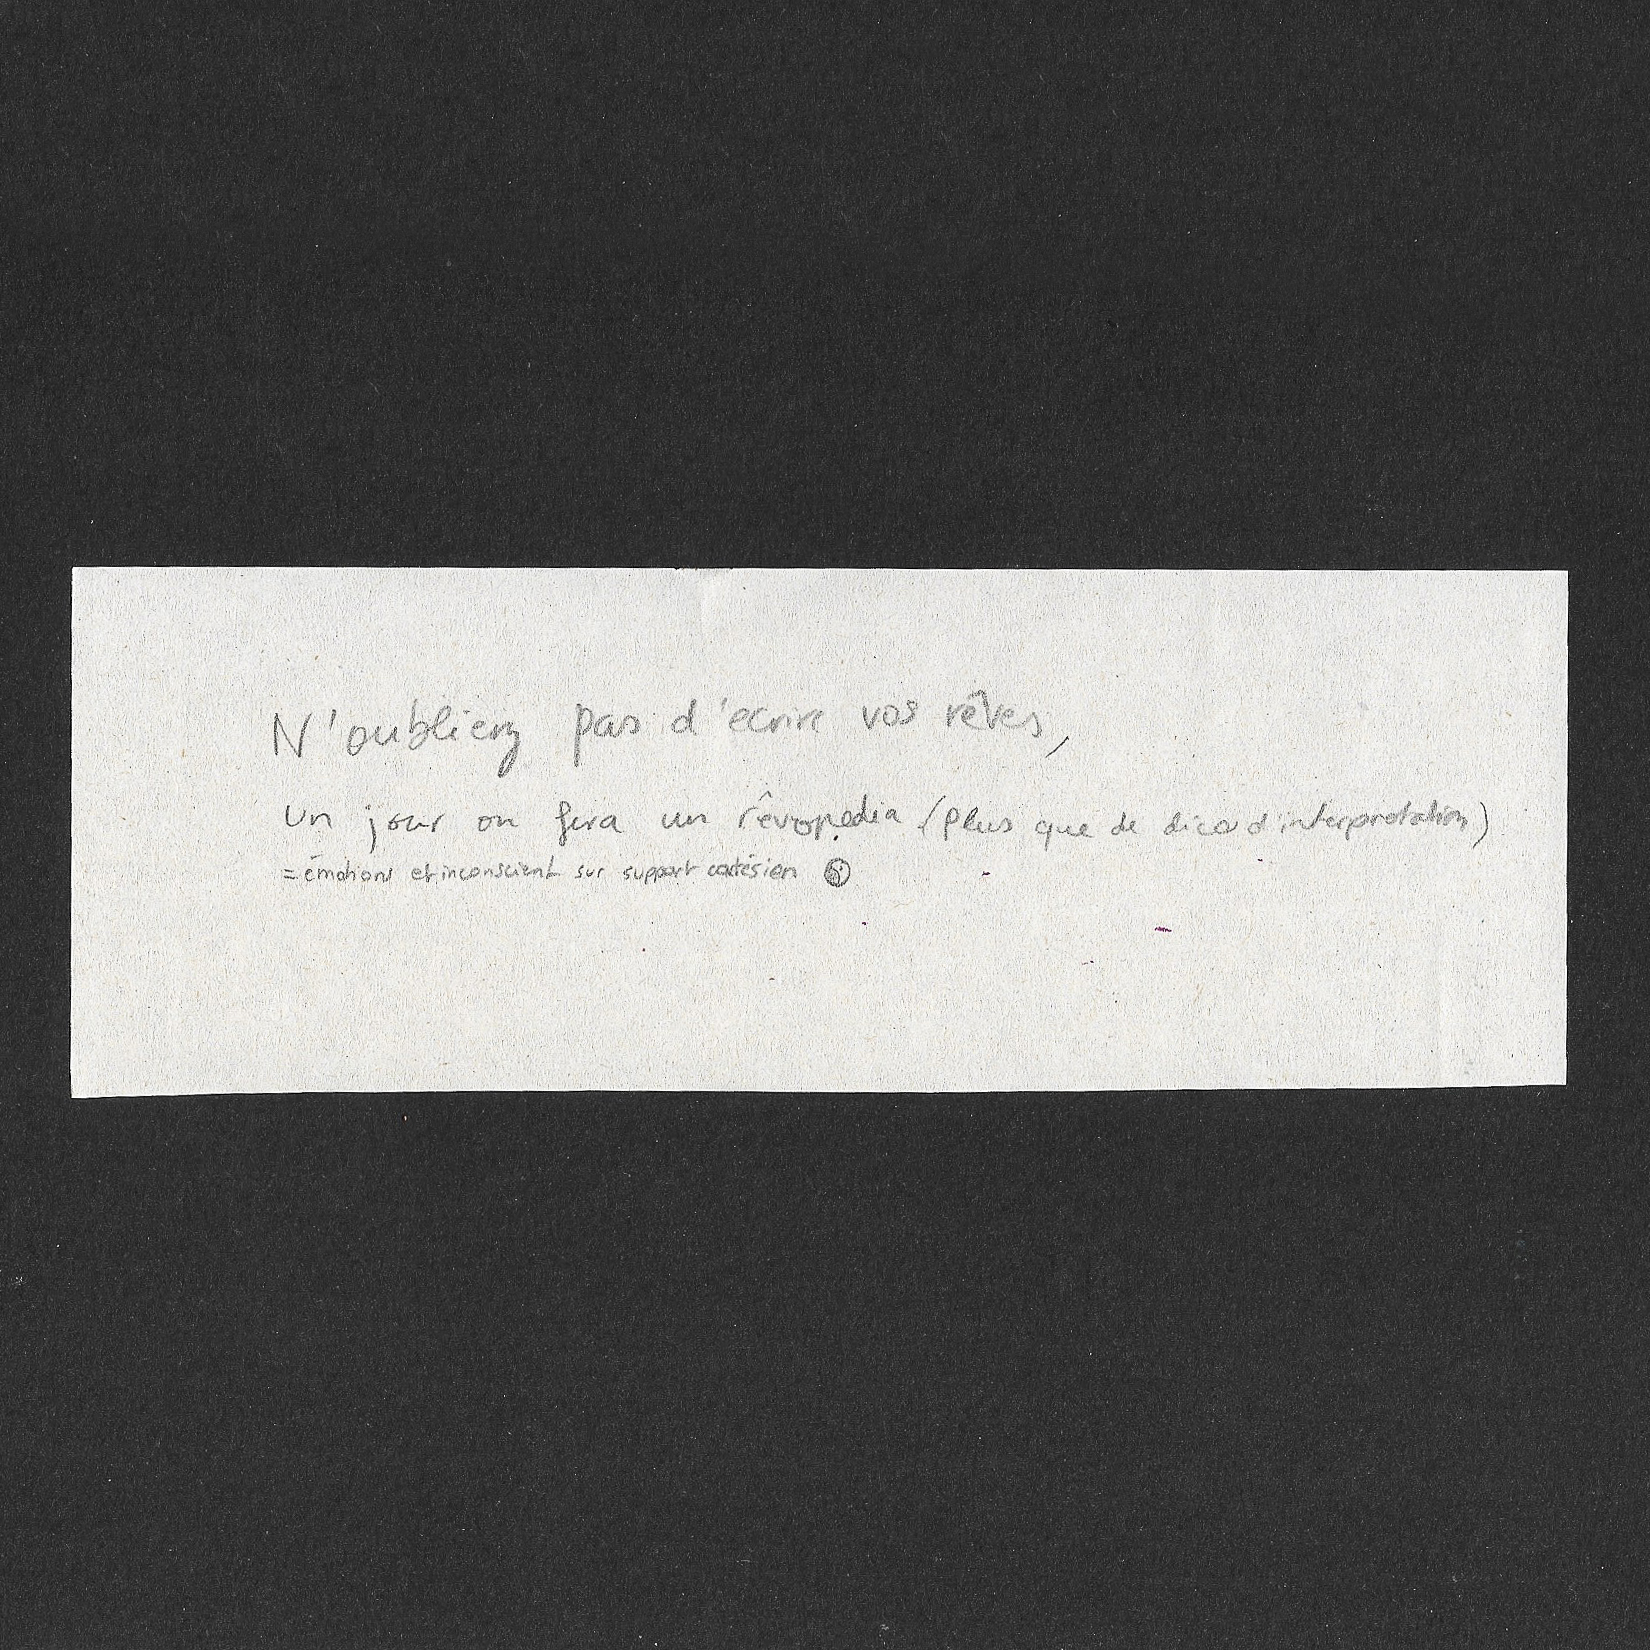 N'oubliez pas d'ecrire vos rêves,
un jour on fera un rêvopedia (plus que de dico d'interpretation)
= émotions et inconscient sur support cartésien